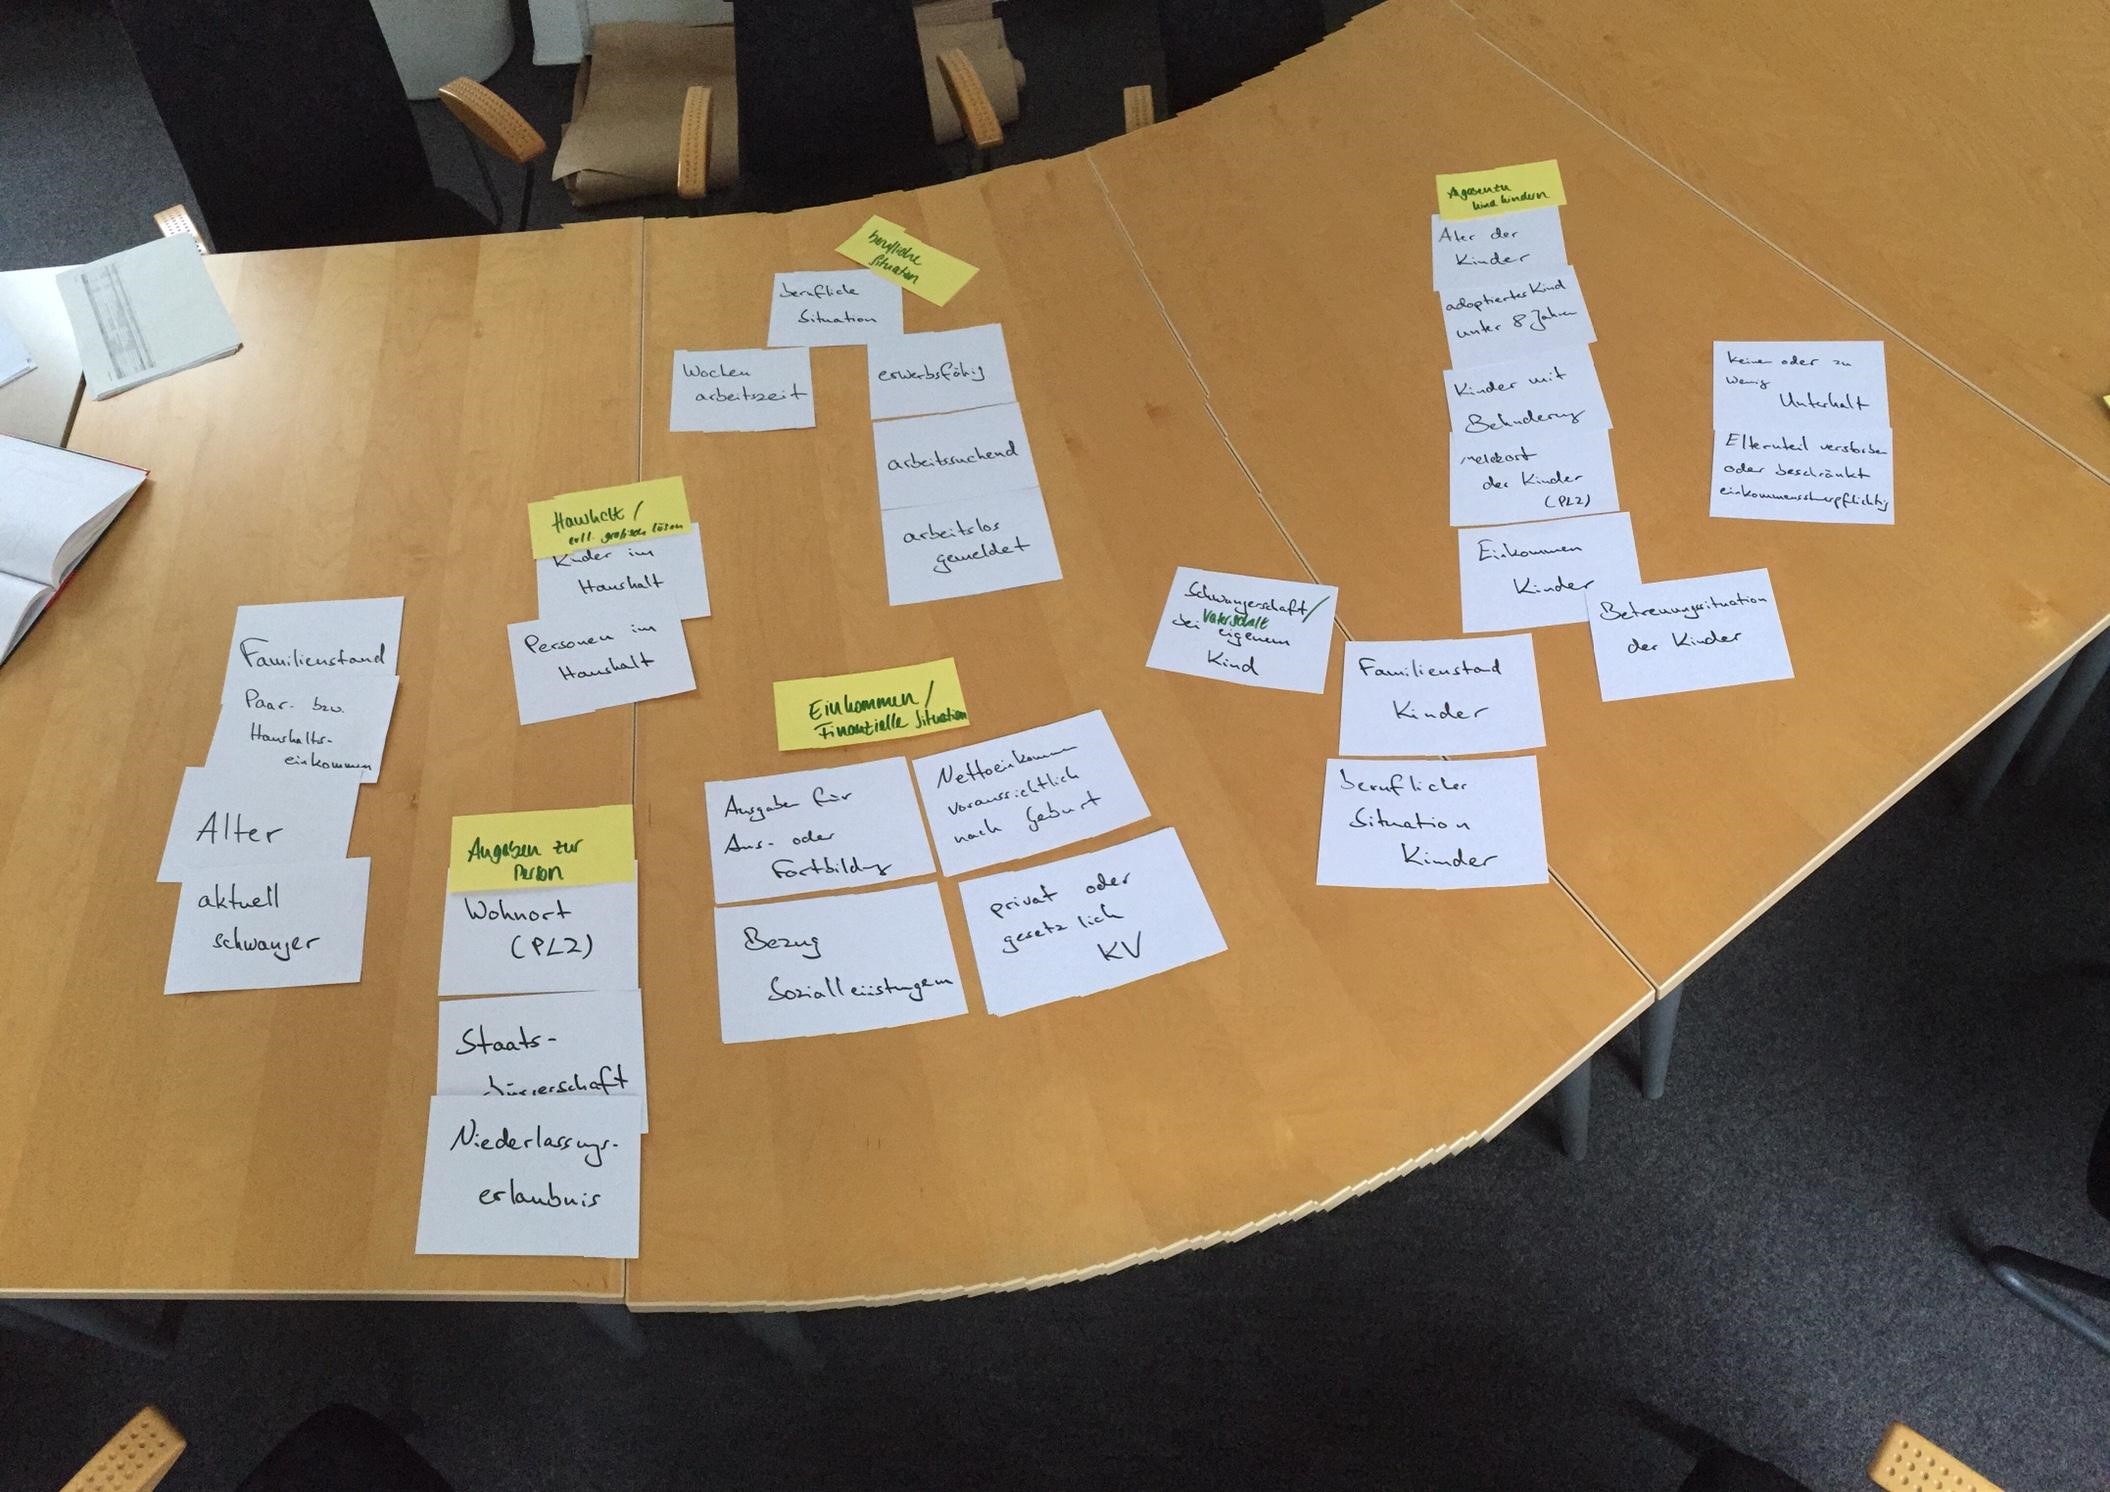 Familienstand
Paar- bzw.
Haushalts-
einkommen
Alter
aktuell
schwanger
Angaben zur
Person
Wohnort
(PLZ)
Staats-
bürgerschaft
Niederlassungs-
erlaubnis
Haushalt /
evtl. grafisch lösen
Kinder im
Haushalt
Personen im
Haushalt
berufliche
Situation
berufliche
Situation
Wochen
arbeitszeit
erwerbsfähig
arbeitssuchend
arbeitslos
gemeldet
Einkommen /
Finanzielle Situation
Ausgaben für
Aus- oder
Fortbildung
Nettoeinkommen
voraussichtlich
nach Geburt
Bezug
Sozialleiistungen
privat oder
gesetzlich
KV
Schwangerschaft /
Vaterschaft
bei eigenem
Kind
Kindern
Alter der
Kinder
adoptiertes Kind
unter 8 Jahren
Kinder mit
Behinderung
Meldeort
der Kinder
(PLZ)
Einkommen
Kinder
Betreuungssituation
der Kinder
Familienstand
Kinder
beruflicher
Situation
Kinder
keinen oder zu
wenig
Unterhalt
Elternteil verstorben
oder beschränkt
einkommenssteuerpflichtig